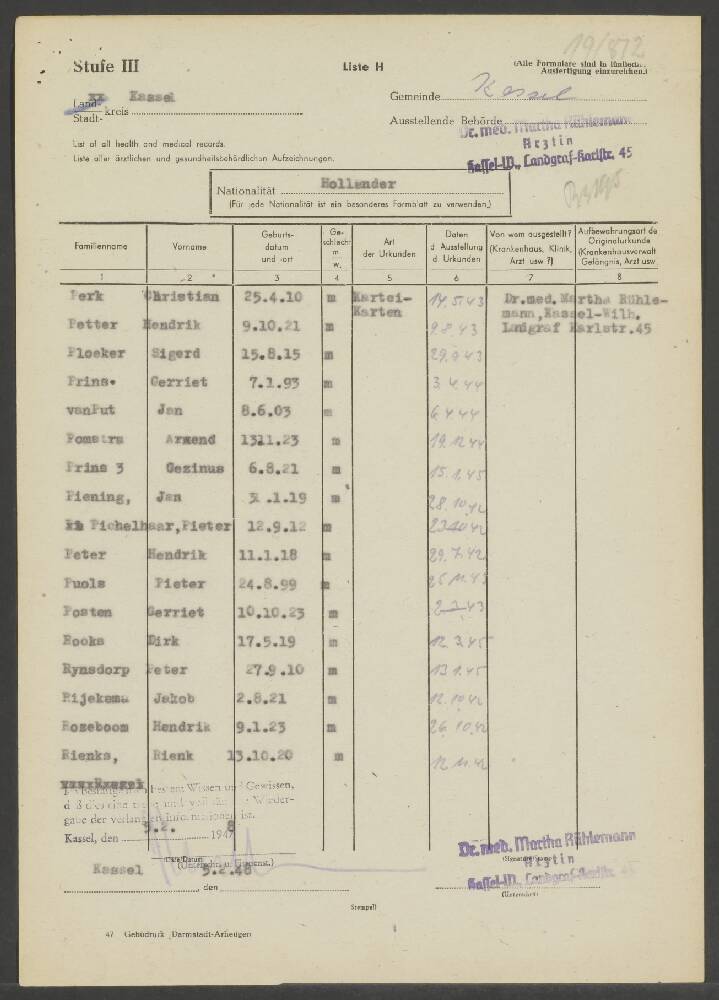 19/872
Stufe III
Liste H
(Alle Formulare sind in
Ausfertigung einzureichen.)
xx Kassel
Land-
Stadt- kreis
Gemeinde Kassel
Ausstellende Behörde
Dr. med. Martha Rühlemann
Ärztin
Kassel-W., Landgraf-Karlstr. 45
List of all health and medical records.
Liste aller ärztlichen und gesundheitsbehördlichen Aufzeichnungen.
Nationalität Hollander
(Für jede Nationalität ist ein besonderes Formblatt zu verwenden.)
Familienname Vorname Geburts-datum und -ort Ge-schlecht m w. Art der Urkunden Daten d. Ausstellung d. Urkunden Von wem ausgestellt? (Krankenhaus, Klinik, Arzt usw ?) Aufbewahrungsort de Originalurkunde (Krankenhausverwalt Gefängnis, Arzt usw
1 2 3 4 5 6 7 8
Perk Christian 25.4.10 m Kartei- 14.5.43 Dr.med. Martha Rühle-
Karten mann, Kassel-Wilh.
Petter Hendrik 9.10.21 m 9.8.43 Landgraf Karlstr.45
Ploeker Sigerd 15.8.15 m 29.9.43
Prins. Gerriet 7.1.93 m 3.4.44
vanPut Jan 8.6.03 m 6.4.44
Pomstra Armend 1311.23 m 19.12.44
Prins 3 Gezinus 6.8.21 m 15.1.45
Piening, Jan .1.19 m 28.10.42
Pichelhaar, Pieter 12.9.12 m 23.10.42
Peter Hendrik 11.1.18 m 29.7.42
Puols Pieter 24.8.99 m
Posten Gerriet 10.10.23 m
Rooks Dirk 17.5.19 m 12.3.45
Rynsdorp Peter 27.9.10 m 13.1.45
Rijeksma Jakob 2.8.21 m 12.10.42
Roseboom Hendrik 9.1.23 m 26.10.42
Rienks, Rienk 13.10.20 m 12.11.42
bestem Wissen und Gewissen,
Wieder-
gabe der verlangten Informationen ist.
Kassel, den 5.2. 1947 8
(Unterschr. u. Dienst.)
Kassel 5.2.48
, den
Dr. med. Martha Rühlemann
Ärztin
Kassel-W., Landgraf-Karlstr. 45
(Unterschrift)
Stempel!
47 Gebüdruk Darmstadt-Arheilgen